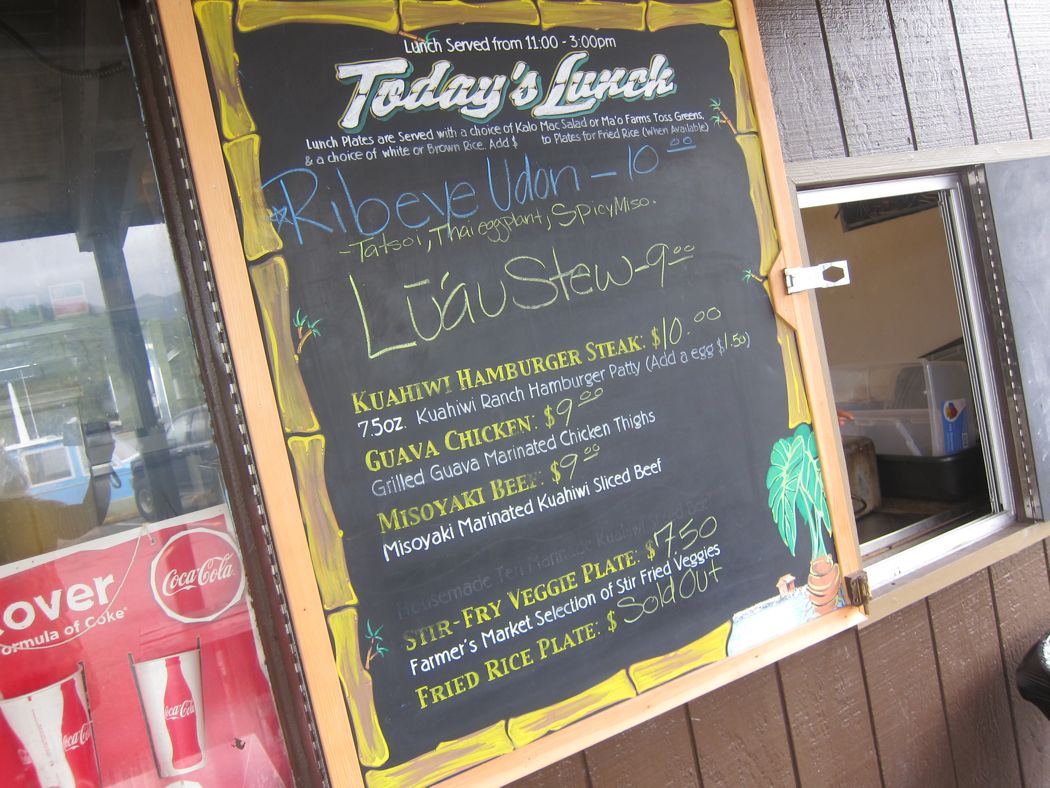 Lunch Served from 11:00 - 3:00pm
Today's Lunch
Lunch Plates are Served with a choice of Kalo Mac Salad or Ma'o Farms Toss Greens,
& a choice of white or Brown Rice. Add $ to Plates for Fried Rice (When Available)
Ribeye Udon - 10.00
- Tatsoi, Thai eggplant, Spicy Miso.
Lūau Stew - 9.00
Kuahiwi Hamburger Steak: $10.00
7.5oz. Kuahiwi Ranch Hamburger Patty (Add a egg $1.50)
Guava Chicken: $9.00
Grilled Guava Marinated Chicken Thighs
Misoyaki Beef: $9.00
Misoyaki Marinated Kuahiwi Sliced Beef
Homemade Teri Marinade Kuahiwi Sliced Beef
Stir-Fry Veggie Plate: $7.50
Farmer's Market Selection of Stir Fried Veggies
Fried Rice Plate: $ Sold Out
over
ormula of Coke
Coca-Cola
Coca-Cola
Coca-Cola